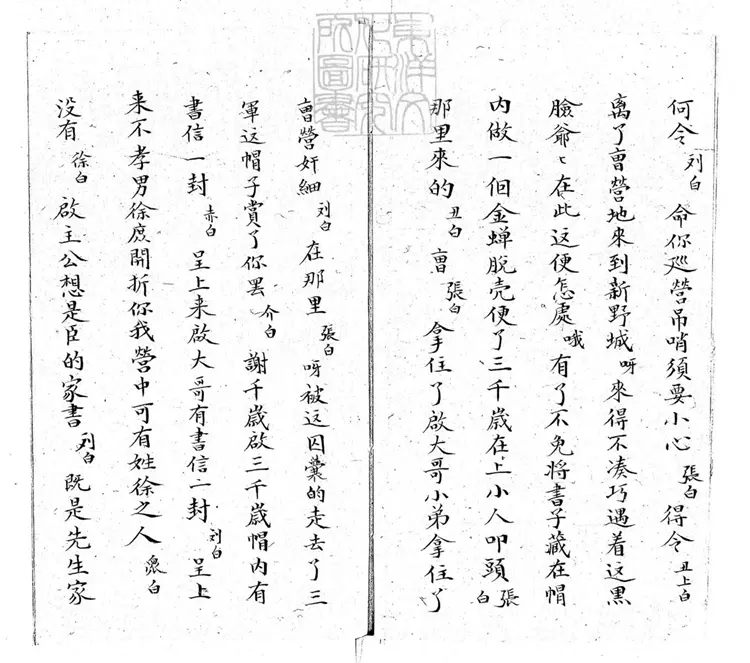 何令 刘白 命你廵營吊哨須要小心 張白 得令 丑上白
离了曺營地來到新野城 呀 來得不凑巧遇着这黒
臉爺〻在此这便怎處 哦 有了不免将書子藏在帽
内做一個金蝉脱壳便了三千歳在上小人叩頭 張白
那里來的 丑白 曺 張白 拿住了啟大哥小弟拿住了
曺營奸細 刘白 在那里 張白 呀被这囚囊的走去了三
軍这帽子賞了你罢 介白 謝千歳啟三千歳帽内有
書信一封 赤白 呈上来啟大哥有書信一封 刘白 呈上
来不孝男徐庶開折你我營中可有姓徐之人 衆白
没有 徐白 啟主公想是臣的家書 刘白 既是先生家
東洋文化研究所圖書